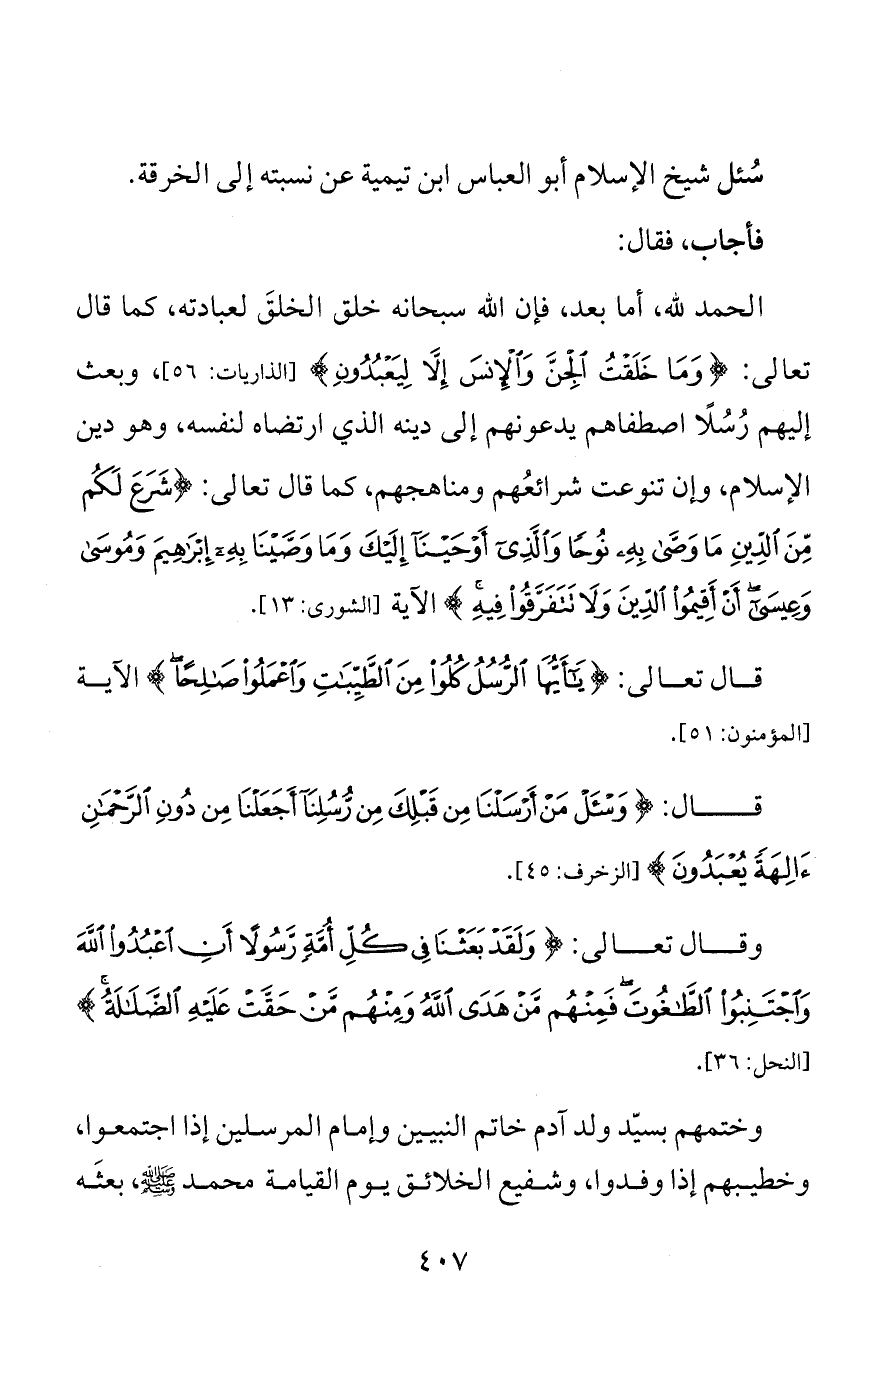 سُئل شيخ الإسلام أبو العباس ابن تيمية عن نسبته إلى الخرقة.
فأجاب، فقال:
الحمد لله، أما بعد، فإن الله سبحانه خلق الخلقَ لعبادته، كما قال
تعالى: ﴿وَمَا خَلَقْتُ ٱلْجِنَّ وَٱلْإِنسَ إِلَّا لِيَعْبُدُونِ﴾ [الذاريات: ٥٦]، وبعث
إليهم رُسُلًا اصطفاهم يدعونهم إلى دينه الذي ارتضاه لنفسه، وهو دين
الإسلام، وإن تنوعت شرائعُهم ومناهجهم، كما قال تعالى: ﴿شَرَعَ لَكُم
مِّنَ ٱلدِّينِ مَا وَصَّىٰ بِهِۦ نُوحًا وَٱلَّذِىٓ أَوْحَيْنَآ إِلَيْكَ وَمَا وَصَّيْنَا بِهِۦٓ إِبْرَٰهِيمَ وَمُوسَىٰ
وَعِيسَىٰٓ ۖ أَنْ أَقِيمُوا۟ ٱلدِّينَ وَلَا تَتَفَرَّقُوا۟ فِيهِ ۚ﴾ الآية [الشورى: ١٣].
قال تعالى: ﴿يَٰٓأَيُّهَا ٱلرُّسُلُ كُلُوا۟ مِنَ ٱلطَّيِّبَٰتِ وَٱعْمَلُوا۟ صَٰلِحًا ۖ﴾ الآية
[المؤمنون: ٥١].
قال: ﴿وَسْـَٔلْ مَنْ أَرْسَلْنَا مِن قَبْلِكَ مِن رُّسُلِنَآ أَجَعَلْنَا مِن دُونِ ٱلرَّحْمَٰنِ
ءَالِهَةً يُعْبَدُونَ﴾ [الزخرف: ٤٥].
وقال تعالى: ﴿وَلَقَدْ بَعَثْنَا فِى كُلِّ أُمَّةٍ رَّسُولًا أَنِ ٱعْبُدُوا۟ ٱللَّهَ
وَٱجْتَنِبُوا۟ ٱلطَّٰغُوتَ ۖ فَمِنْهُم مَّنْ هَدَى ٱللَّهُ وَمِنْهُم مَّنْ حَقَّتْ عَلَيْهِ ٱلضَّلَٰلَةُ ۚ﴾
[النحل: ٣٦].
وختمهم بسيّد ولد آدم خاتم النبيين وإمام المرسلين إذا اجتمعوا،
وخطيبهم إذا وفدوا، وشفيع الخلائق يوم القيامة محمد ﷺ، بعثَه
٤٠٧